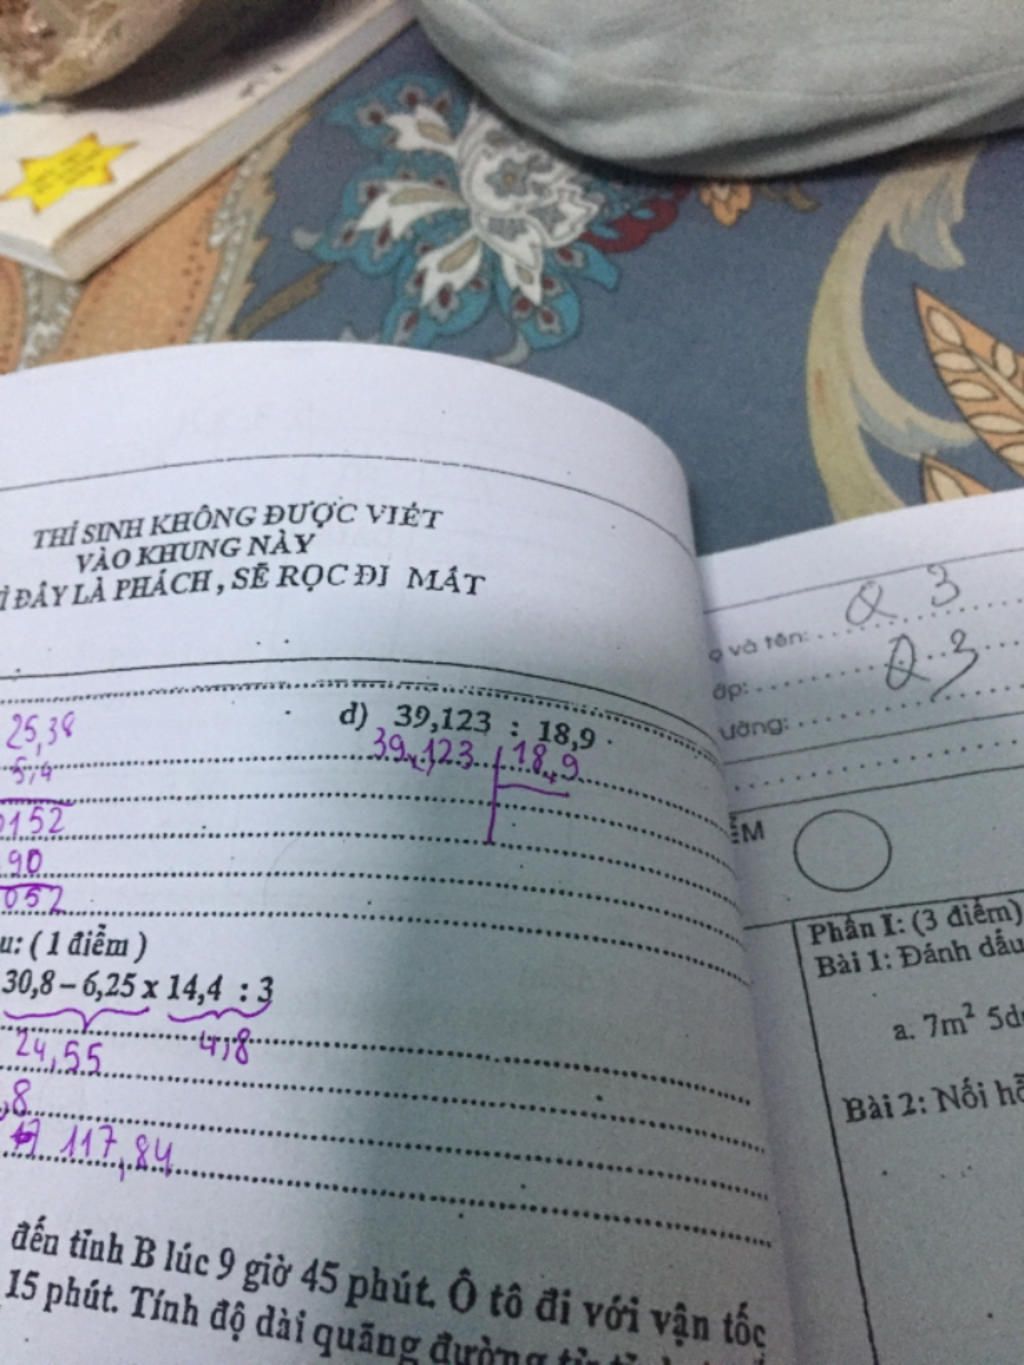 THÍ SINH KHÔNG ĐƯỢC VIẾT
VÀO KHUNG NÀY
Ì ĐÂY LÀ PHÁCH, SẼ RỌC ĐI MẤT
25,38
5,4
0152
90
052
d) 39,123 : 18,9
39,123 18,9
u: ( 1 điểm )
30,8 – 6,25 x 14,4 : 3
24,55 4,8
,8
117,84
đến tỉnh B lúc 9 giờ 45 phút. Ô tô đi với vận tốc
15 phút. Tính độ dài quãng đường từ
ọ và tên: Q 3
ớp: Q 3
ường:
ỂM
Phần I: (3 điểm)
Bài 1: Đánh dấu
a. 7m² 5d
Bài 2: Nối